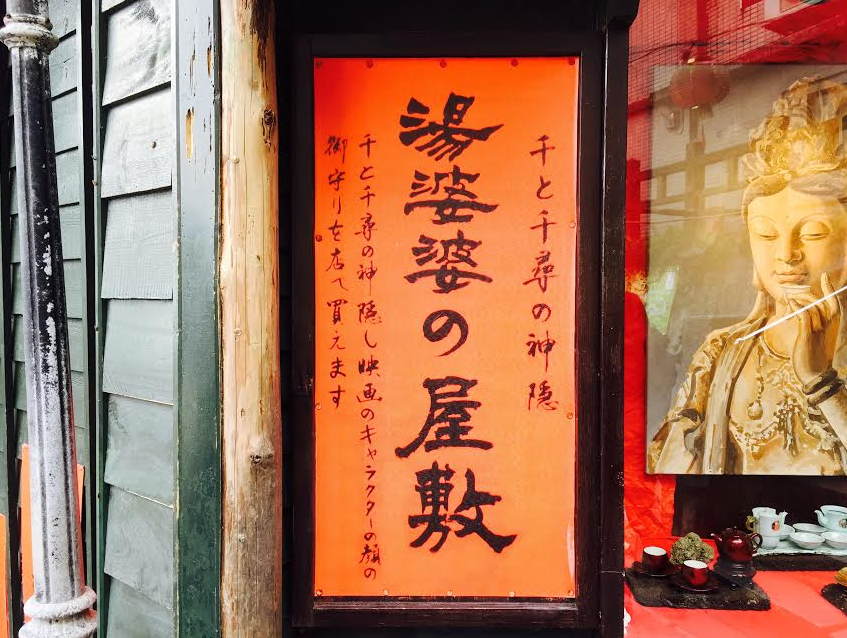 千と千尋の神隠
湯婆婆の屋敷
千と千尋の神隠し映画のキャラクターの顔の
御守りを店て買えます